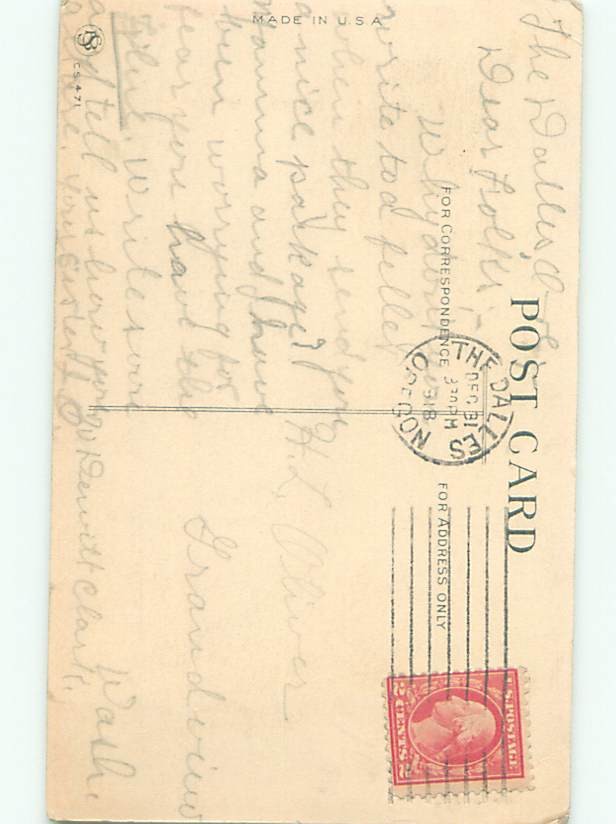 MADE IN U.S.A
C S 471
The Dalles, O
Dear Folks:
Why don't
write to a feller
when they send you
a nice package?
Mamma and I have
been worrying for
fear you have the
"Flu". Write soon
and tell us how you
are. Your Sister,
DeWitt Clark.
POST CARD
FOR CORRESPONDENCE
FOR ADDRESS ONLY
THE DALLES
DEC 31
330PM
1918
OREGON
U.S. POSTAGE
2 CENTS 2
H. L. Oliver
Grandview
Wash.